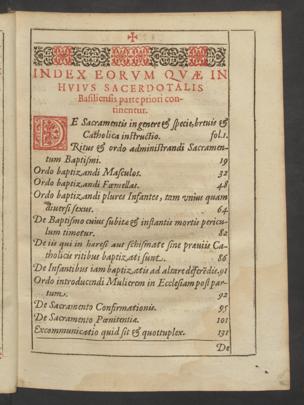 INDEX EORVM QVÆ IN
HVIVS SACERDOTALIS
Basiliensis parte priori con-
tinentur.
DE Sacramentis in genere & specie, breuis &
Catholica instructio. fol.1.
Ritus & ordo administrandi Sacramen-
tum Baptismi. 19
Ordo baptizandi Masculos. 32
Ordo baptizandi Fœmellas. 48
Ordo baptizandi plures Infantes, tam vnius quam
diuersi sexus. 64
De Baptismo cuius subitæ & instantis mortis pericu-
lum timetur. 82
De iis qui in hæresi aut schismate sine præuiis Ca-
tholicis ritibus baptizati sunt. 86
De Infantibus iam baptizatis ad altare deferēdis. 91
Ordo introducendi Mulierem in Ecclesiam post par-
tum. 92
De Sacramento Confirmationis. 95
De Sacramento Pœnitentiæ. 101
Excommunicatio quid sit & quottuplex. 131
De